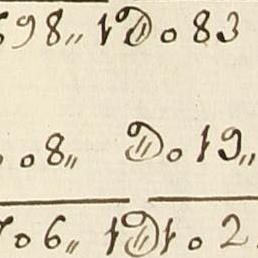 98„ 1 D 0 83
08„ D 0 19„
06„ 1 D 1 0 2